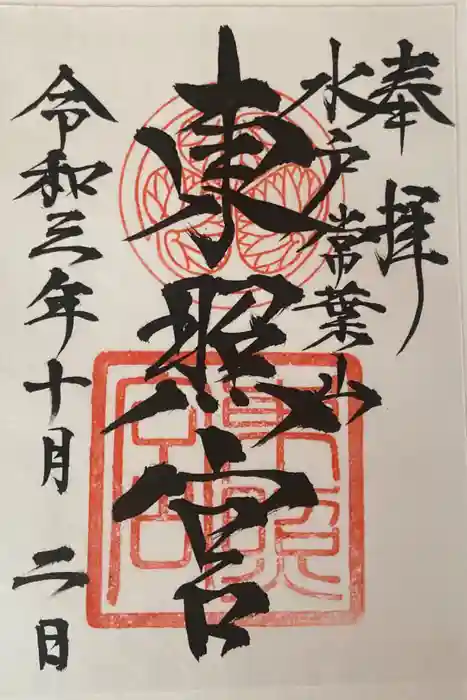 奉拝
水戸常葉山
東照宮
令和三年十月二日
東照宮